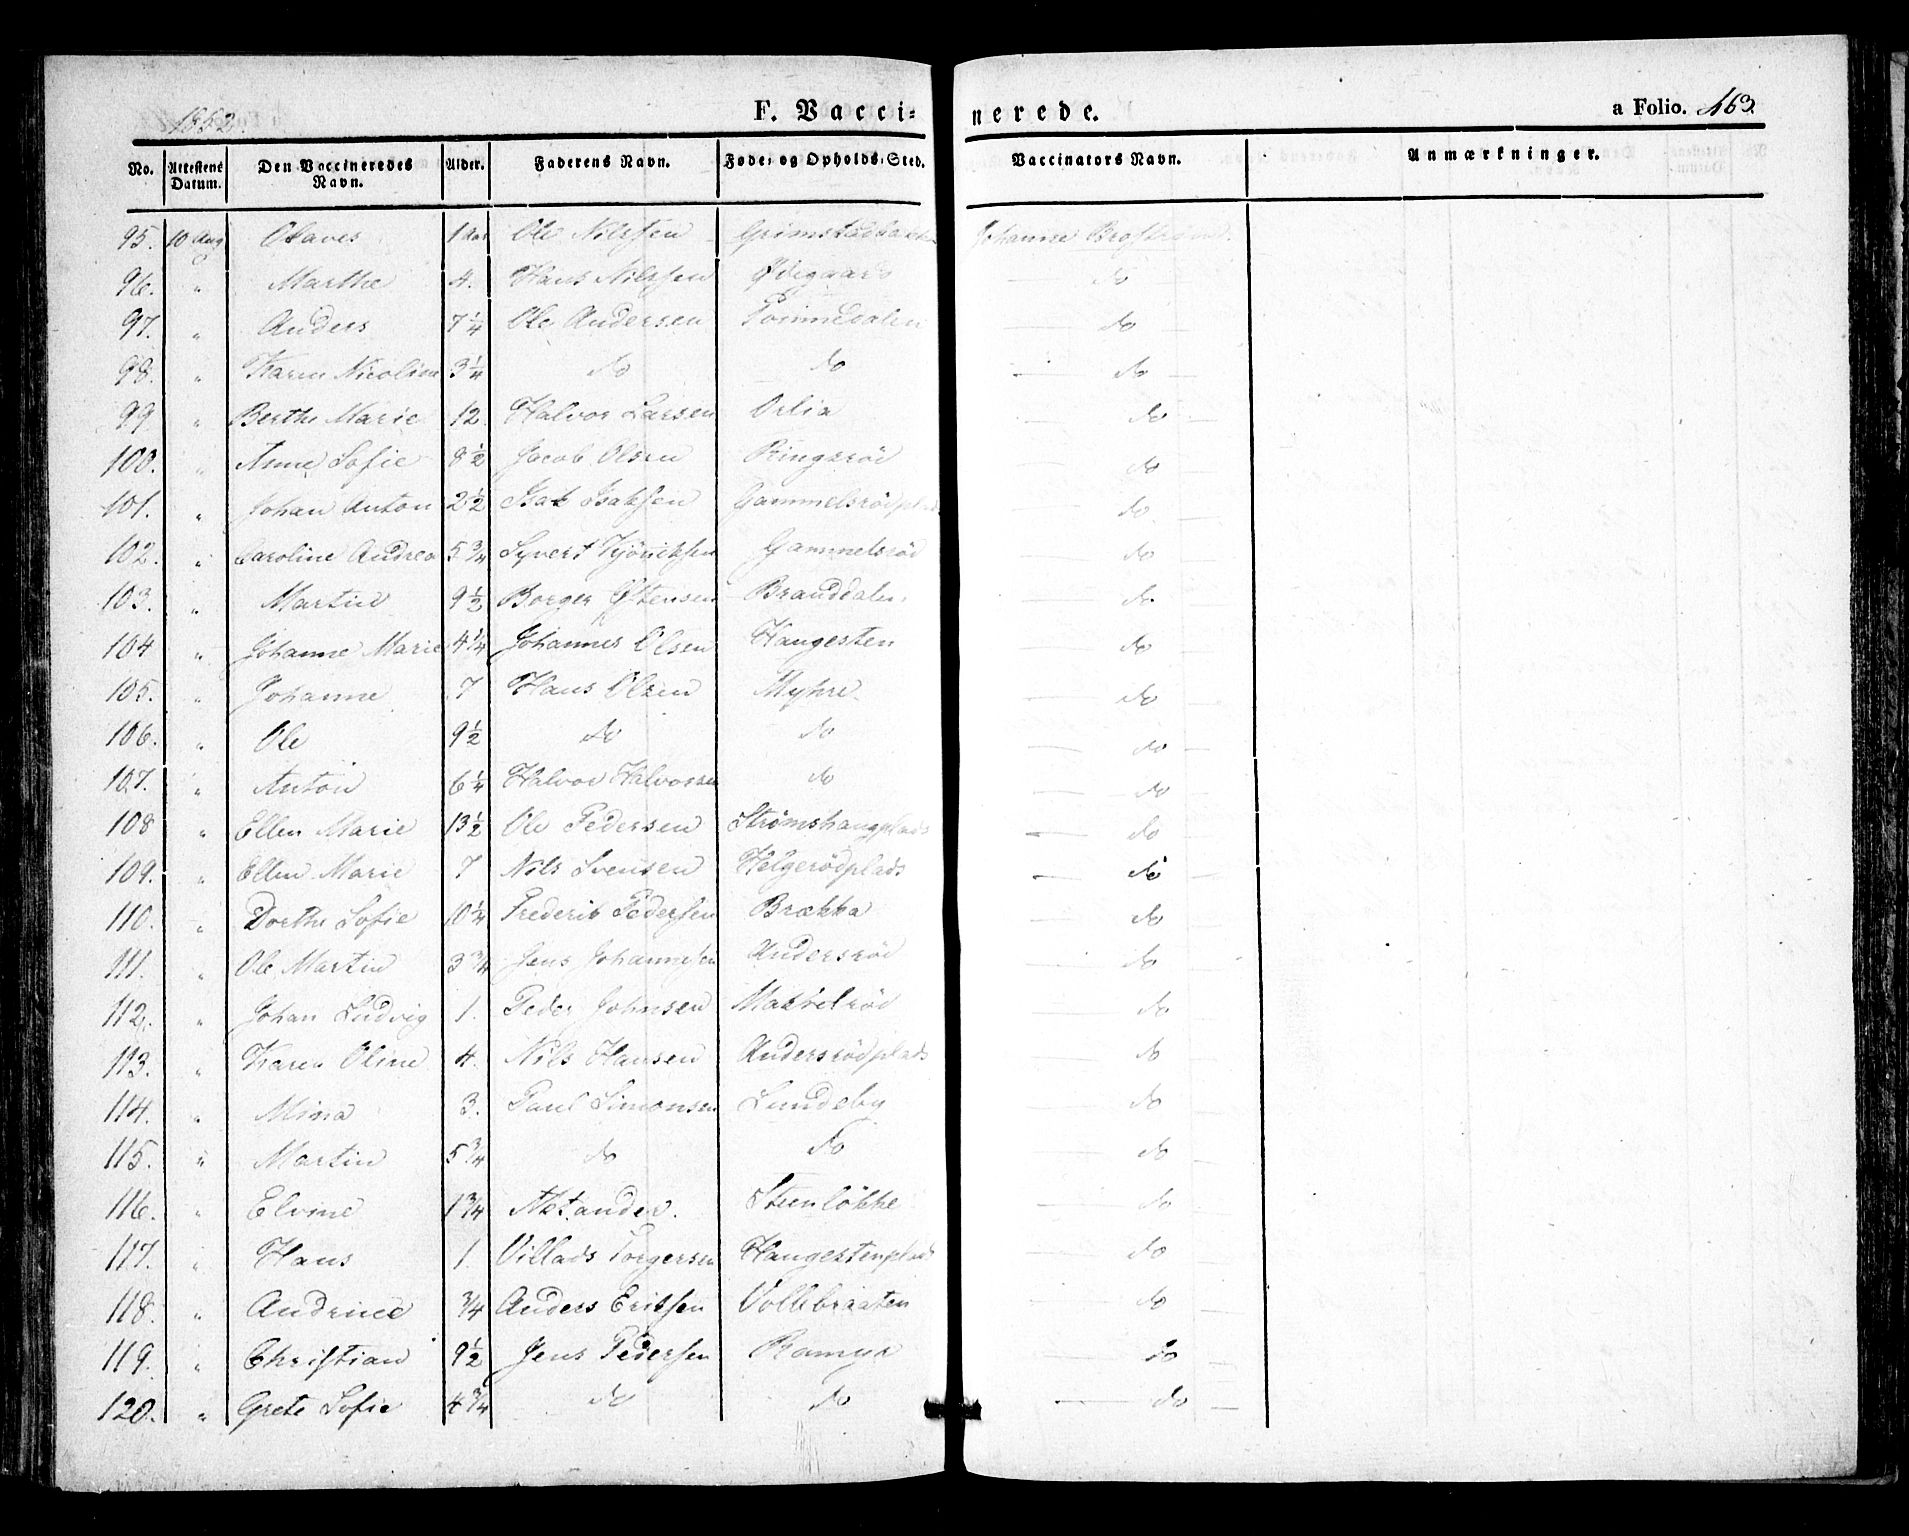 1852. F. Vaccinerede. a Folio. 163.
No. Attestens Datum. Den Vaccineredes Navn. Alder. Faderens Navn. Føde- og Opholds-Sted. Vaccinators Navn. Anmærkninger.
95. 10 Aug Olaves 1 Aar Ole Nilssen Grimstadbakke Johanne
96. " Marthe 4. Hans Nilssen Ødegaard do
97. " Anders 7 1/4 Ole Andersen Pommedalen do
98. " Karen Nicoline 3 1/4 do do do
99 " Berthe Marie 12 Halvor Larsen Orlia do
100. " Anne Sofie 8 1/2 Jacob Olsen Ringsröd do
101. " Johan Anton 2 1/2 Isak Isaksen Gammelsrödplads do
102. " Caroline Andrea 5 3/4 Syvert Gammelsröd do
103. " Martin 9 1/2 Borger Østensen Branddalen do
104 " Johanne Marie 4 1/4 Johannes Olsen Haugesten do
105. " Johanne 7 Hans Olsen Myhre do
106. " Ole 9 1/2 do do do
107. " Anton 6 1/4 Halvor Halvorsen do do
108 " Ellen Marie 13 1/2 Ole Pedersen Strømshaugplads do
109. " Ellen Marie 7 Nils Svensen Helgerödplads do
110. " Dorthe Sofie 10 1/4 Frederik Pedersen Brække do
111. " Ole Martin 3 3/4 Jens Johannesen Andersröd do
112. " Johan Ludvig 1. Peder Johnsen Makrelröd do
113. " Karen Oline 4. Nils Hansen Andersrödplads do
114. " Mina 3. Paul Simonsen Lundeby do
115. " Martin 5 3/4 do do do
116. " Elvine 1 3/4 Steenlökke do
117. " Hans 1. Villads Torgersen Haugestenplads do
118. " Andrine 3/4 Anders Eriksen Vollebraaten do
119. " Christian 9 1/2 Jens Pedersen Ramyr do
120. " Grete Sofie 4 3/4 do do do